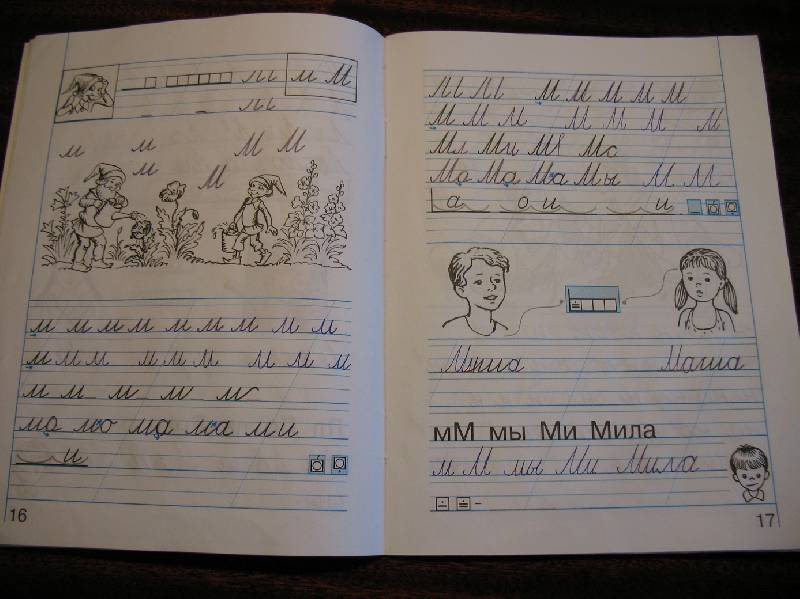 м М
м м М М
м М
м м м м м м м м м
м м м м м м м м м
м м м м м
ма мо ма ма ми
и
16
М М М М М
М М М М М М М
Мл Ми Мо
Ма Ма Ма Мы М М
а о и и
Миша Маша
мМ мы Ми Мила
м М мы Ми Мила
17